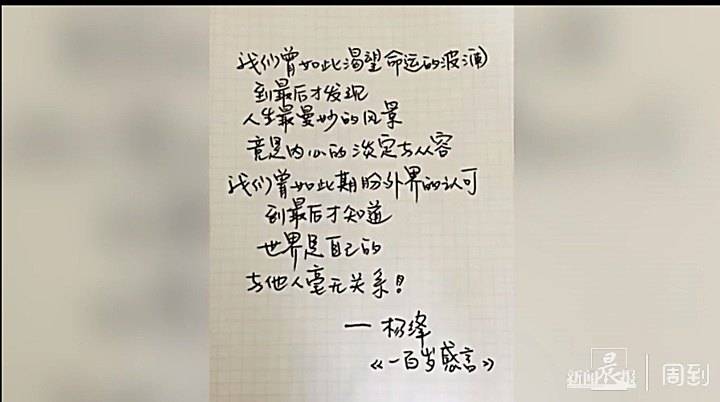 我们曾如此渴望命运的波涌
到最后才发现
人生最曼妙的风景
竟是内心的淡定与从容
我们曾如此期盼外界的认可
到最后才知道
世界是自己的
与他人毫无关系！
— 杨绛
《一百岁感言》
新闻晨报 | 周到